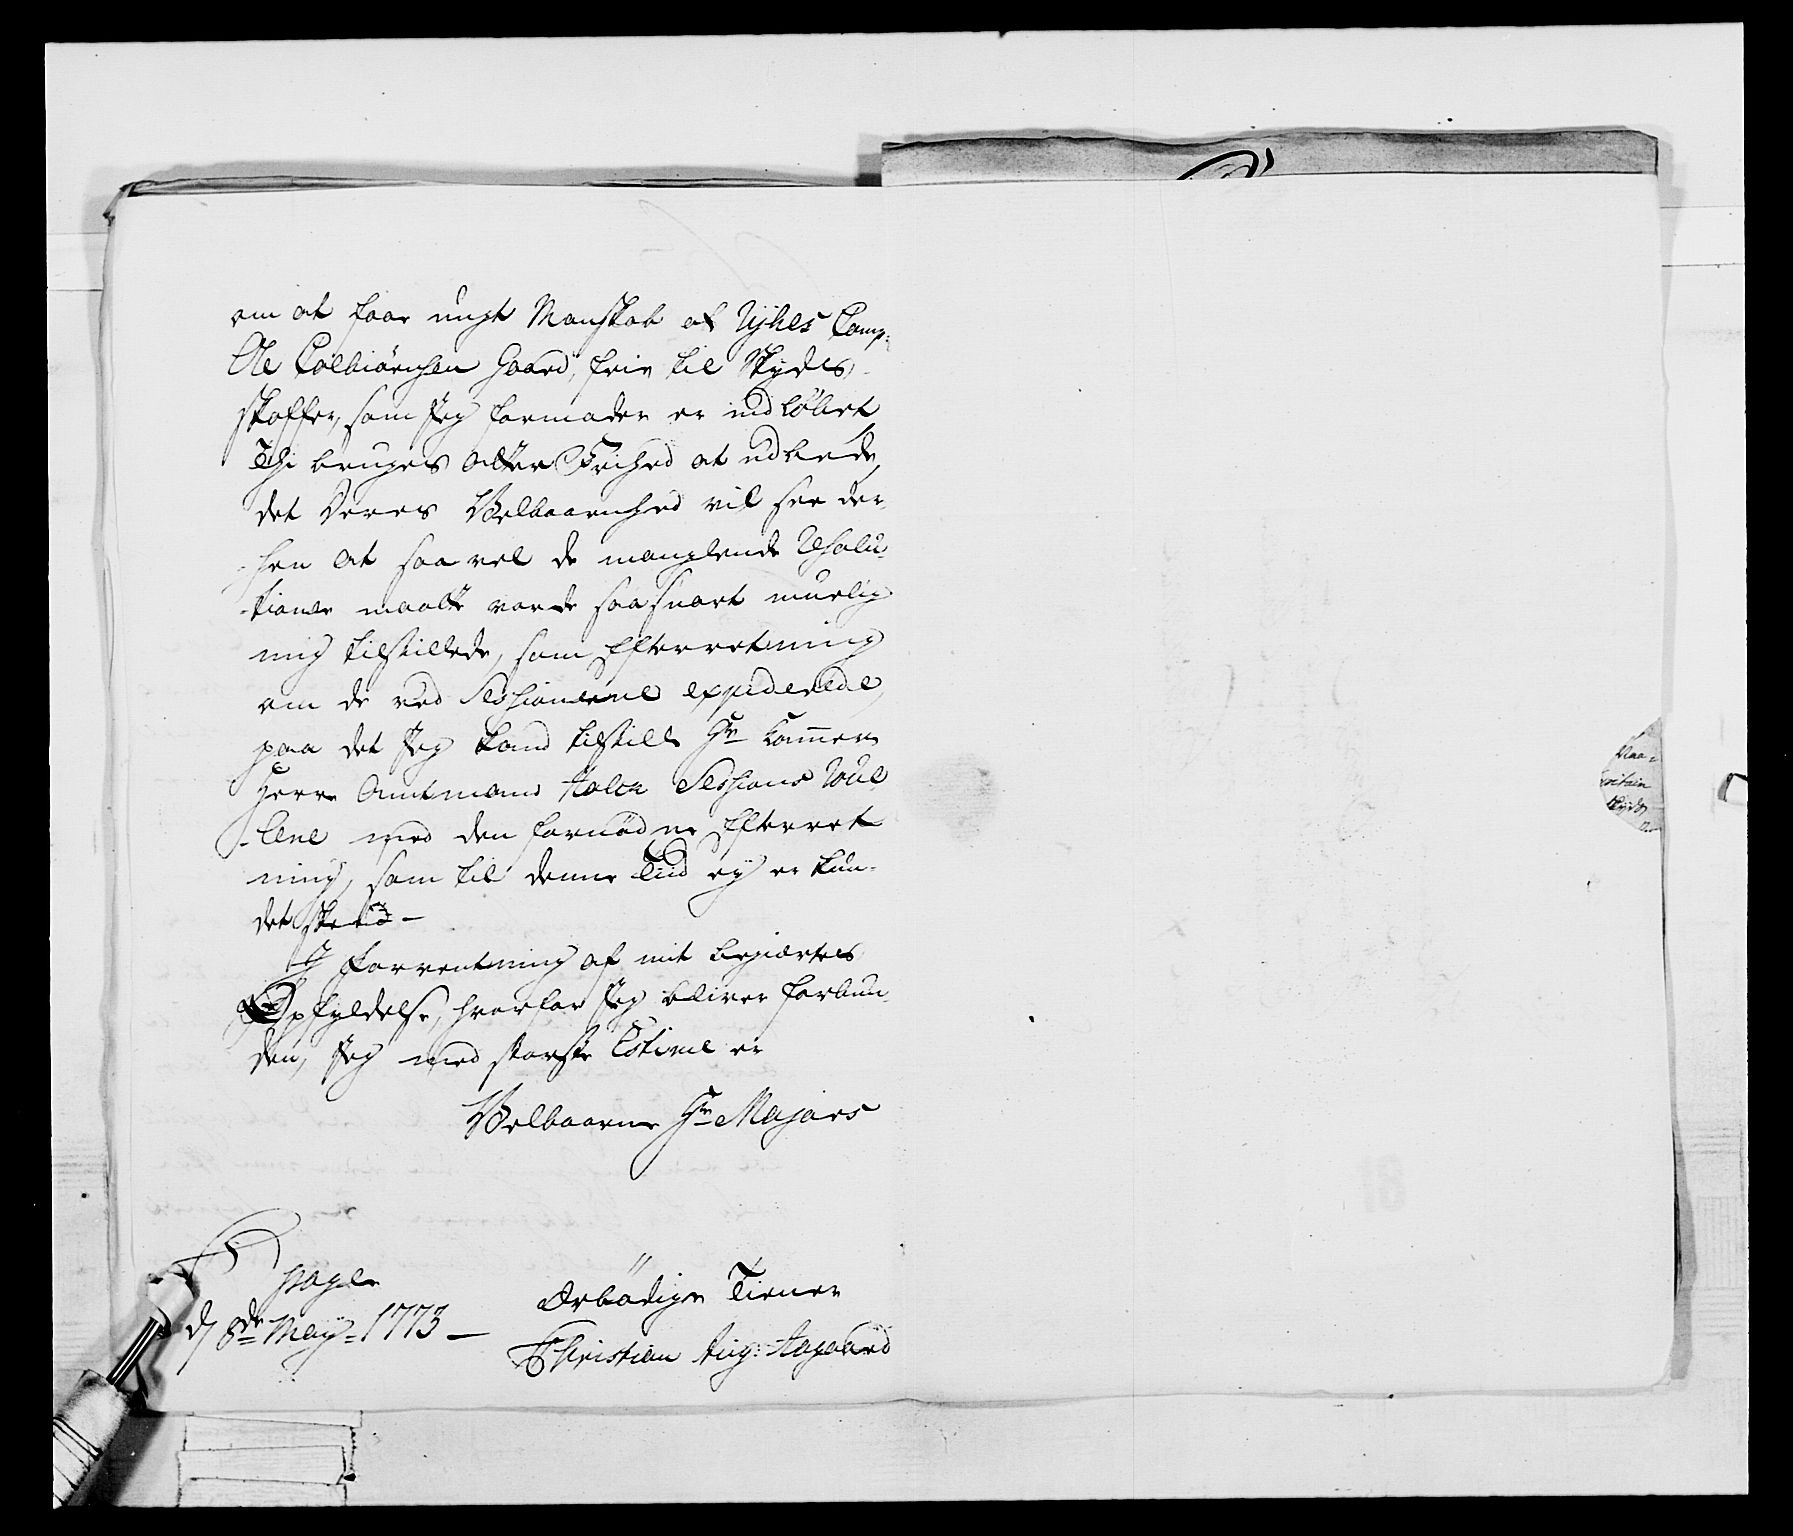 om at faae ungt Manskab af Ryhes Comp:
Ole Colbiörnsen Gaard, frie til Skyds
skaffer, som Jeg formoder er indlöbet
Thi bruges atter Friehed at udbede,
det Deres Velbaarenhed vil see der-
hen at saa vel de manglende Resolu-
tioner maatte vorde saa snart muelig
mig tilstillede, som Efterretning
om de ved Sessionerne expiderede,
paa det Jeg kand tilstille Hr Kammer
Herre Amtmand Holck Sessions Rul-
lene med den fornödne Efterret
ning, som til denne Tiid ey er kun-
det skee -
I Forventning af mit begiærtes
Opfyldelse, hvorfor Jeg bliver forbun-
den, Jeg med störste Estime er
Velbaarne Hr Majors
d 8de May = 1773 -
Ærbödige Tiener
Christian Aug: Aagaard